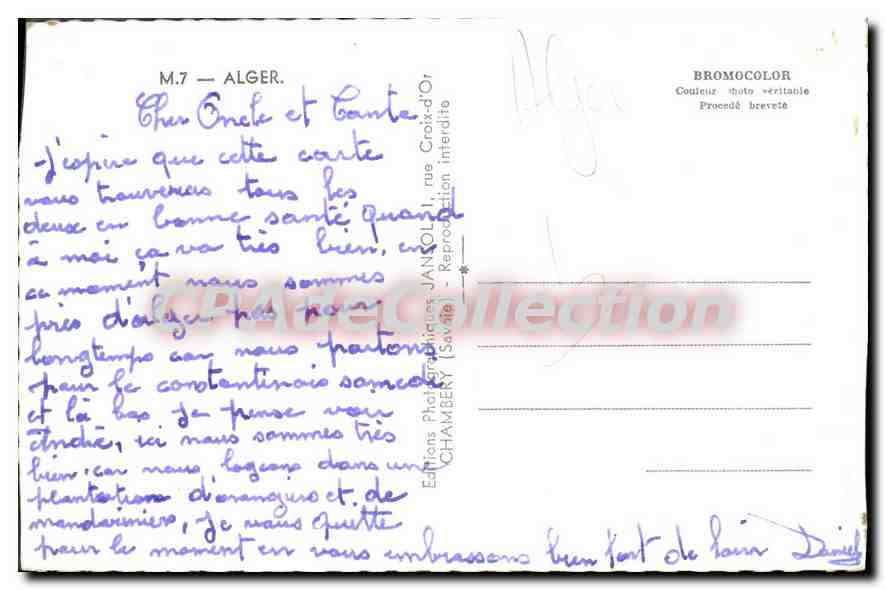 M.7 — ALGER.
Cher Oncle et Tante
J'espère que cette carte
vous trouveras tous les
deux en bonne santé quand
à moi ça va très bien, en
ce moment nous sommes
près d'alger pas pour
longtemps car nous partons
pour le constantinois samedi
et là bas je pense voir
André, ici nous sommes très
bien car nous logeons dans une
plantations d'orangers et de
mandariniers, Je vous quitte
pour le moment en vous embrassons bien fort de loin Daniel
Editions Photographiques JANSOL, 1, rue Croix-d'Or
CHAMBERY (Savoie) - Reproduction interdite
Alger
BROMOCOLOR
Couleur photo véritable
Procédé breveté
CPAdeCollection